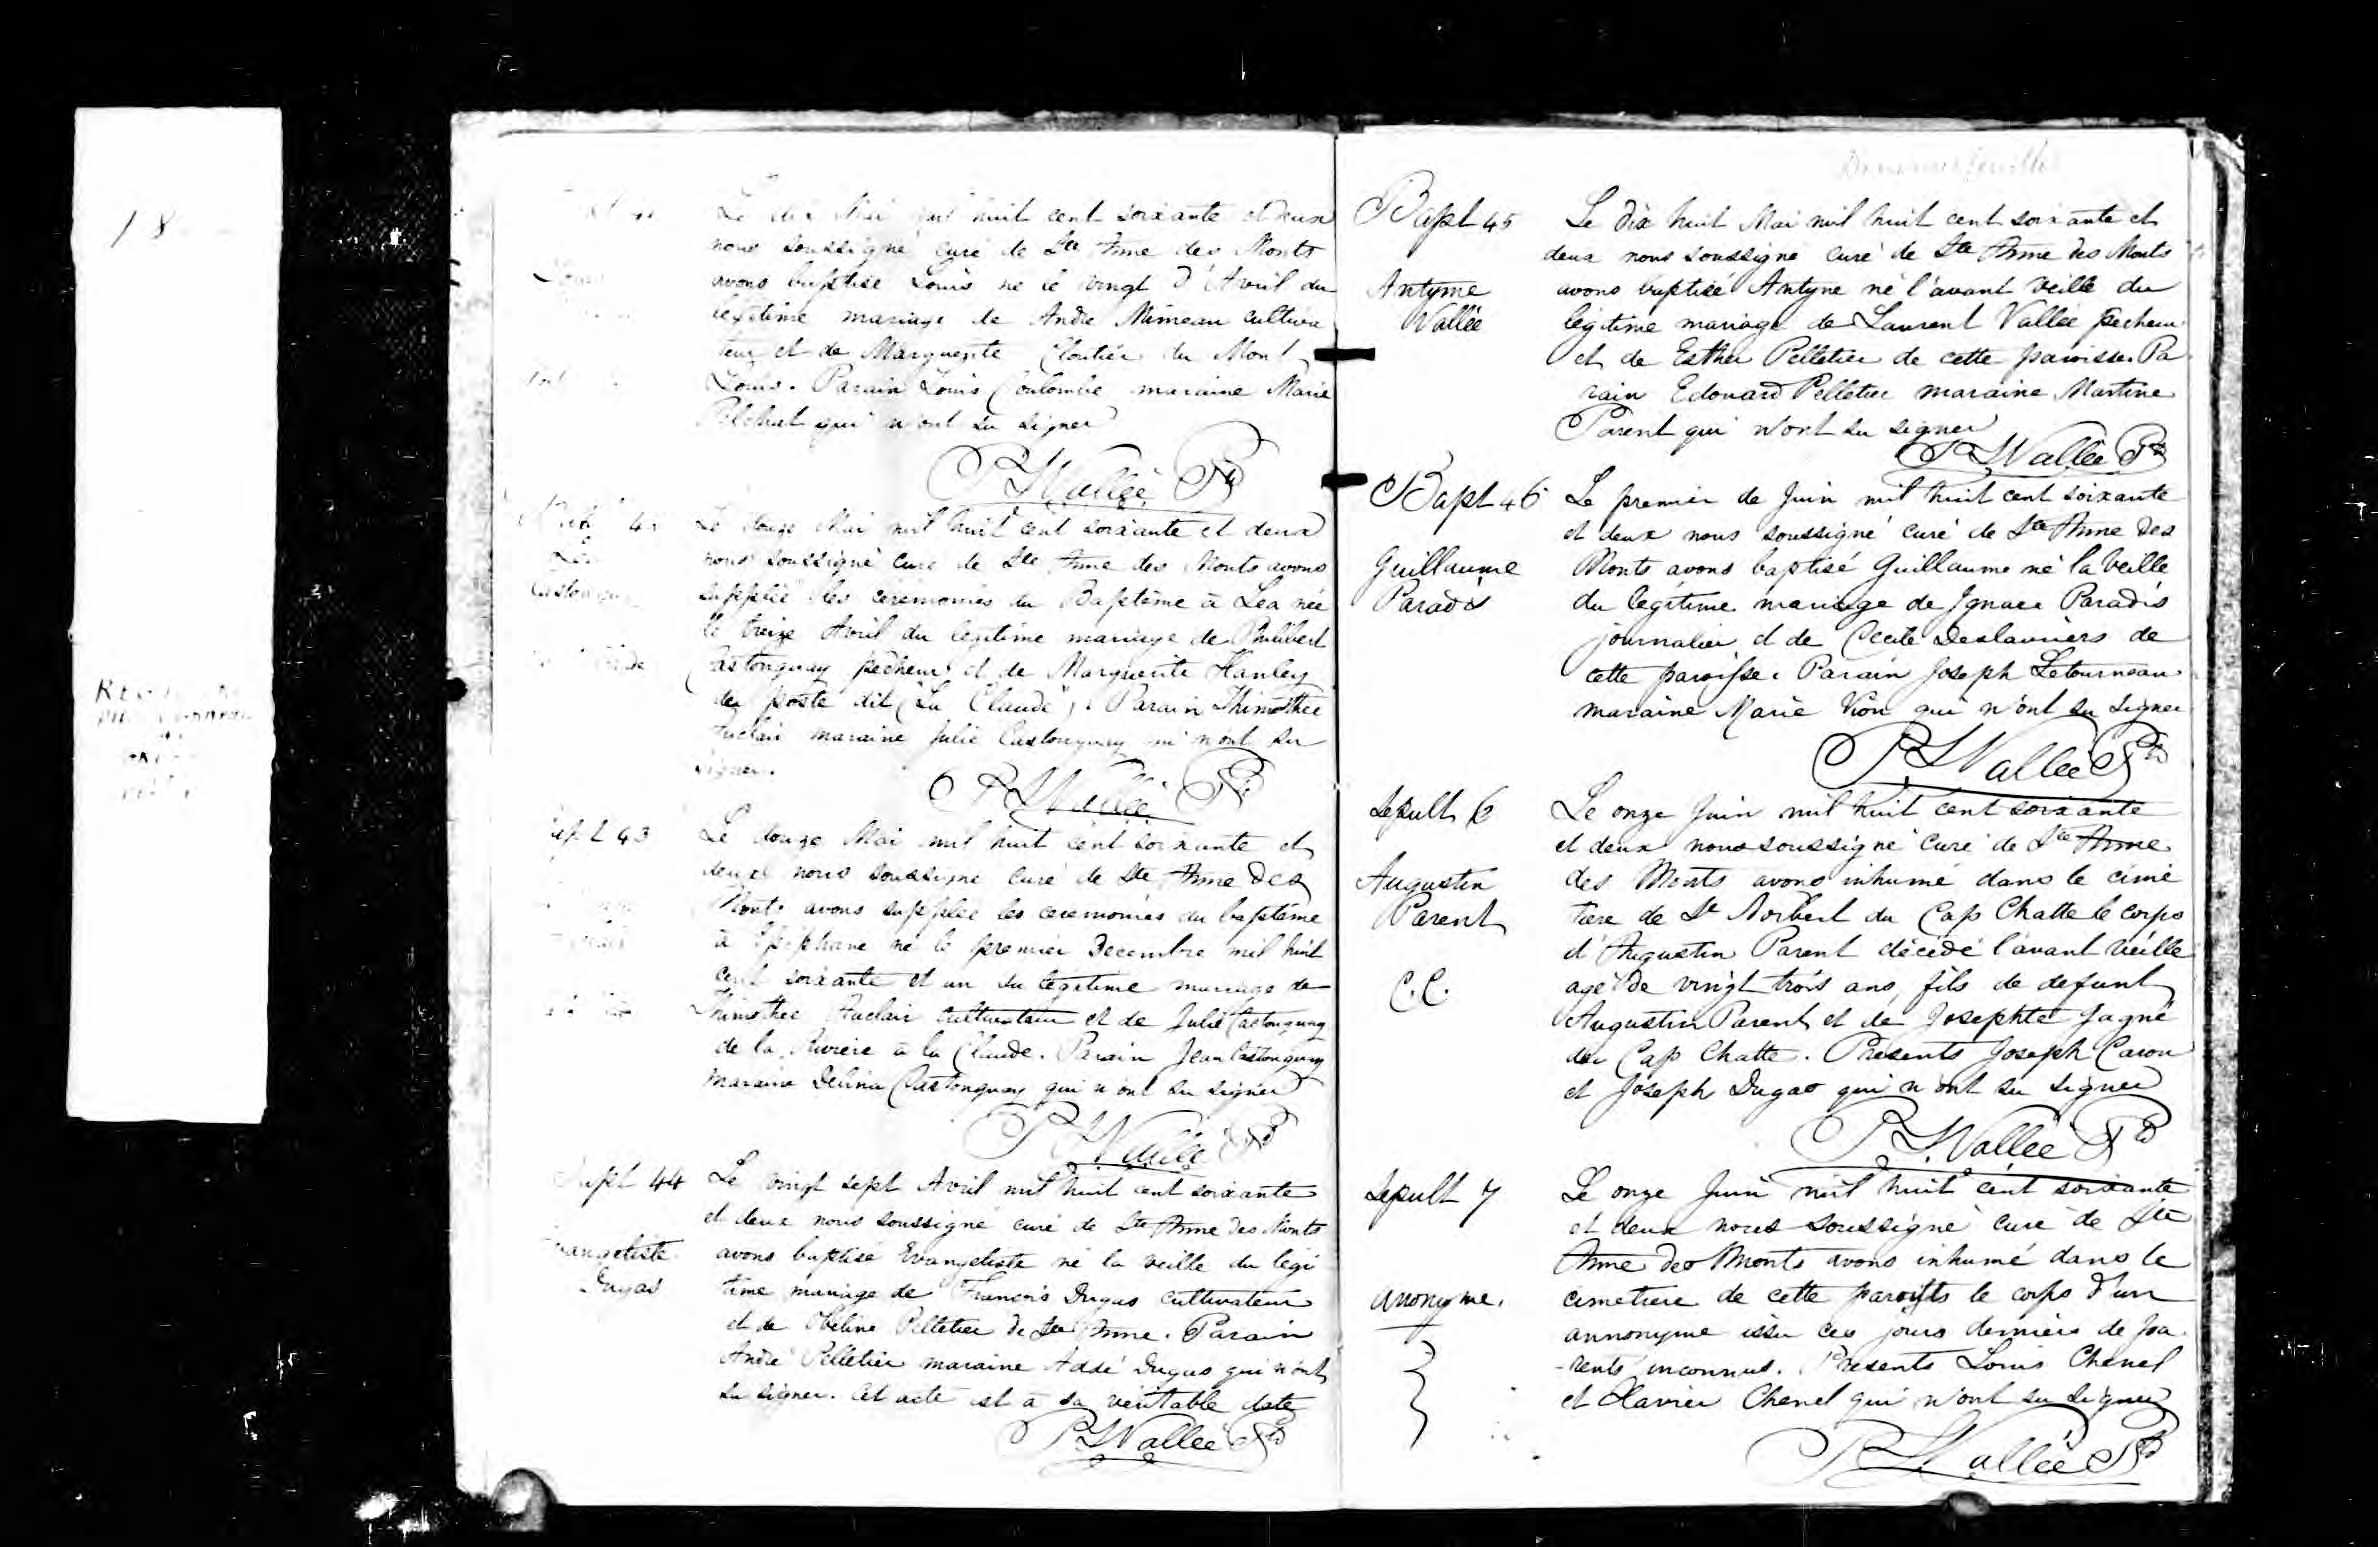 18
Le dix Mai mil huit cent soixante et deux
nous soussigné curé de Ste Anne des Monts
Louis
avons baptisé Louis né le vingt d'Avril du
legitime mariage de André Mimeau cultiva
teur et de Marguerite Cloutier du Mont
Louis. Parain Louis Coulombe maraine Marie
qui n'ont su signer
P. J. Vallée Ptre
Le douze Mai mil huit cent soixante et deux
Léa
nous soussigné curé de Ste Anne des Monts avons
Castonguay
supplée les ceremonies du Baptême à Lea née
le treize Avril du legitime mariage de Philibert
Castonguay pêcheur et de Marguerite Hanley
du poste dit (La Claude). Parain Thimothée
Auclair maraine Julie Castonguay qui n'ont su
signer.
P. J. Vallée Ptre
Bapt 43
Le douze Mai mil huit cent soixante et
deux nous soussigné curé de Ste Anne des
Monts avons supplée les ceremonies du baptême
à Epiphane né le premier Decembre mil huit
cent soixante et un du legitime mariage de
Thimothée Auclair cultivateur et de Julie Castonguay
de la Rivière à la Claude. Parain Jean Castonguay
maraine Delina Castonguay qui n'ont su signer
P. J. Vallée Ptre
Bapt 44
Le vingt sept Avril mil huit cent soixante
et deux nous soussigné curé de Ste Anne des Monts
Evangeliste
avons baptisé Evangeliste né la veille du legi
Dugas
time mariage de François Dugas cultivateur
et de Obeline Pelletier de Ste Anne. Parain
André Pelletier maraine Addé Dugas qui n'ont
su signer. Cet acte est à sa veritable date
P. J. Vallée Ptre
Bapt 45
Le dix huit Mai mil huit cent soixante et
deux nous soussigné curé de Ste Anne des Monts
Antyme
avons baptisé Antyne né l'avant veille du
Vallée
légitime mariage de Laurent Vallée pecheur
et de Esther Pelletier de cette paroisse. Pa
rain Edouard Pelletier maraine Martine
Parent qui n'ont su signer
P. J. Vallée Ptre
Bapt 46
Le premier de Juin mil huit cent soixante
et deux nous soussigné curé de Ste Anne des
Guillaume
Monts avons baptisé Guillaume né la veille
Paradis
du legitime mariage de Ignace Paradis
journalier et de Cecile Deslauriers de
cette paroisse. Parain Joseph Letourneau
maraine Marie Vion qui n'ont su signer
P. J. Vallée Ptre
Sepult 6
Le onze Juin mil huit cent soixante
et deux nous soussigné curé de Ste Anne
Augustin
des Monts avons inhumé dans le cime
Parent
tiere de St Norbert du Cap Chatte le corps
d'Augustin Parent décédé l'avant vieille
C.C.
agé de vingt trois ans, fils de defunt
Augustin Parent et de Josephte Gagné
du Cap Chatte. Présents Joseph Caron
et Joseph Dugas qui n'ont su signer
P. J. Vallée Ptre
Sepult 7
Le onze Juin mil huit cent soixante
et deux nous soussigné curé de Ste
Anne des Monts avons inhumé dans le
anonyme.
cimetiere de cette paroisse le corps d'un
annonyme issu ces jours derniers de pa
-rents inconnus. Presents Louis Chenel
et Xavier Chenel qui n'ont su signer
P. J. Vallée Ptre